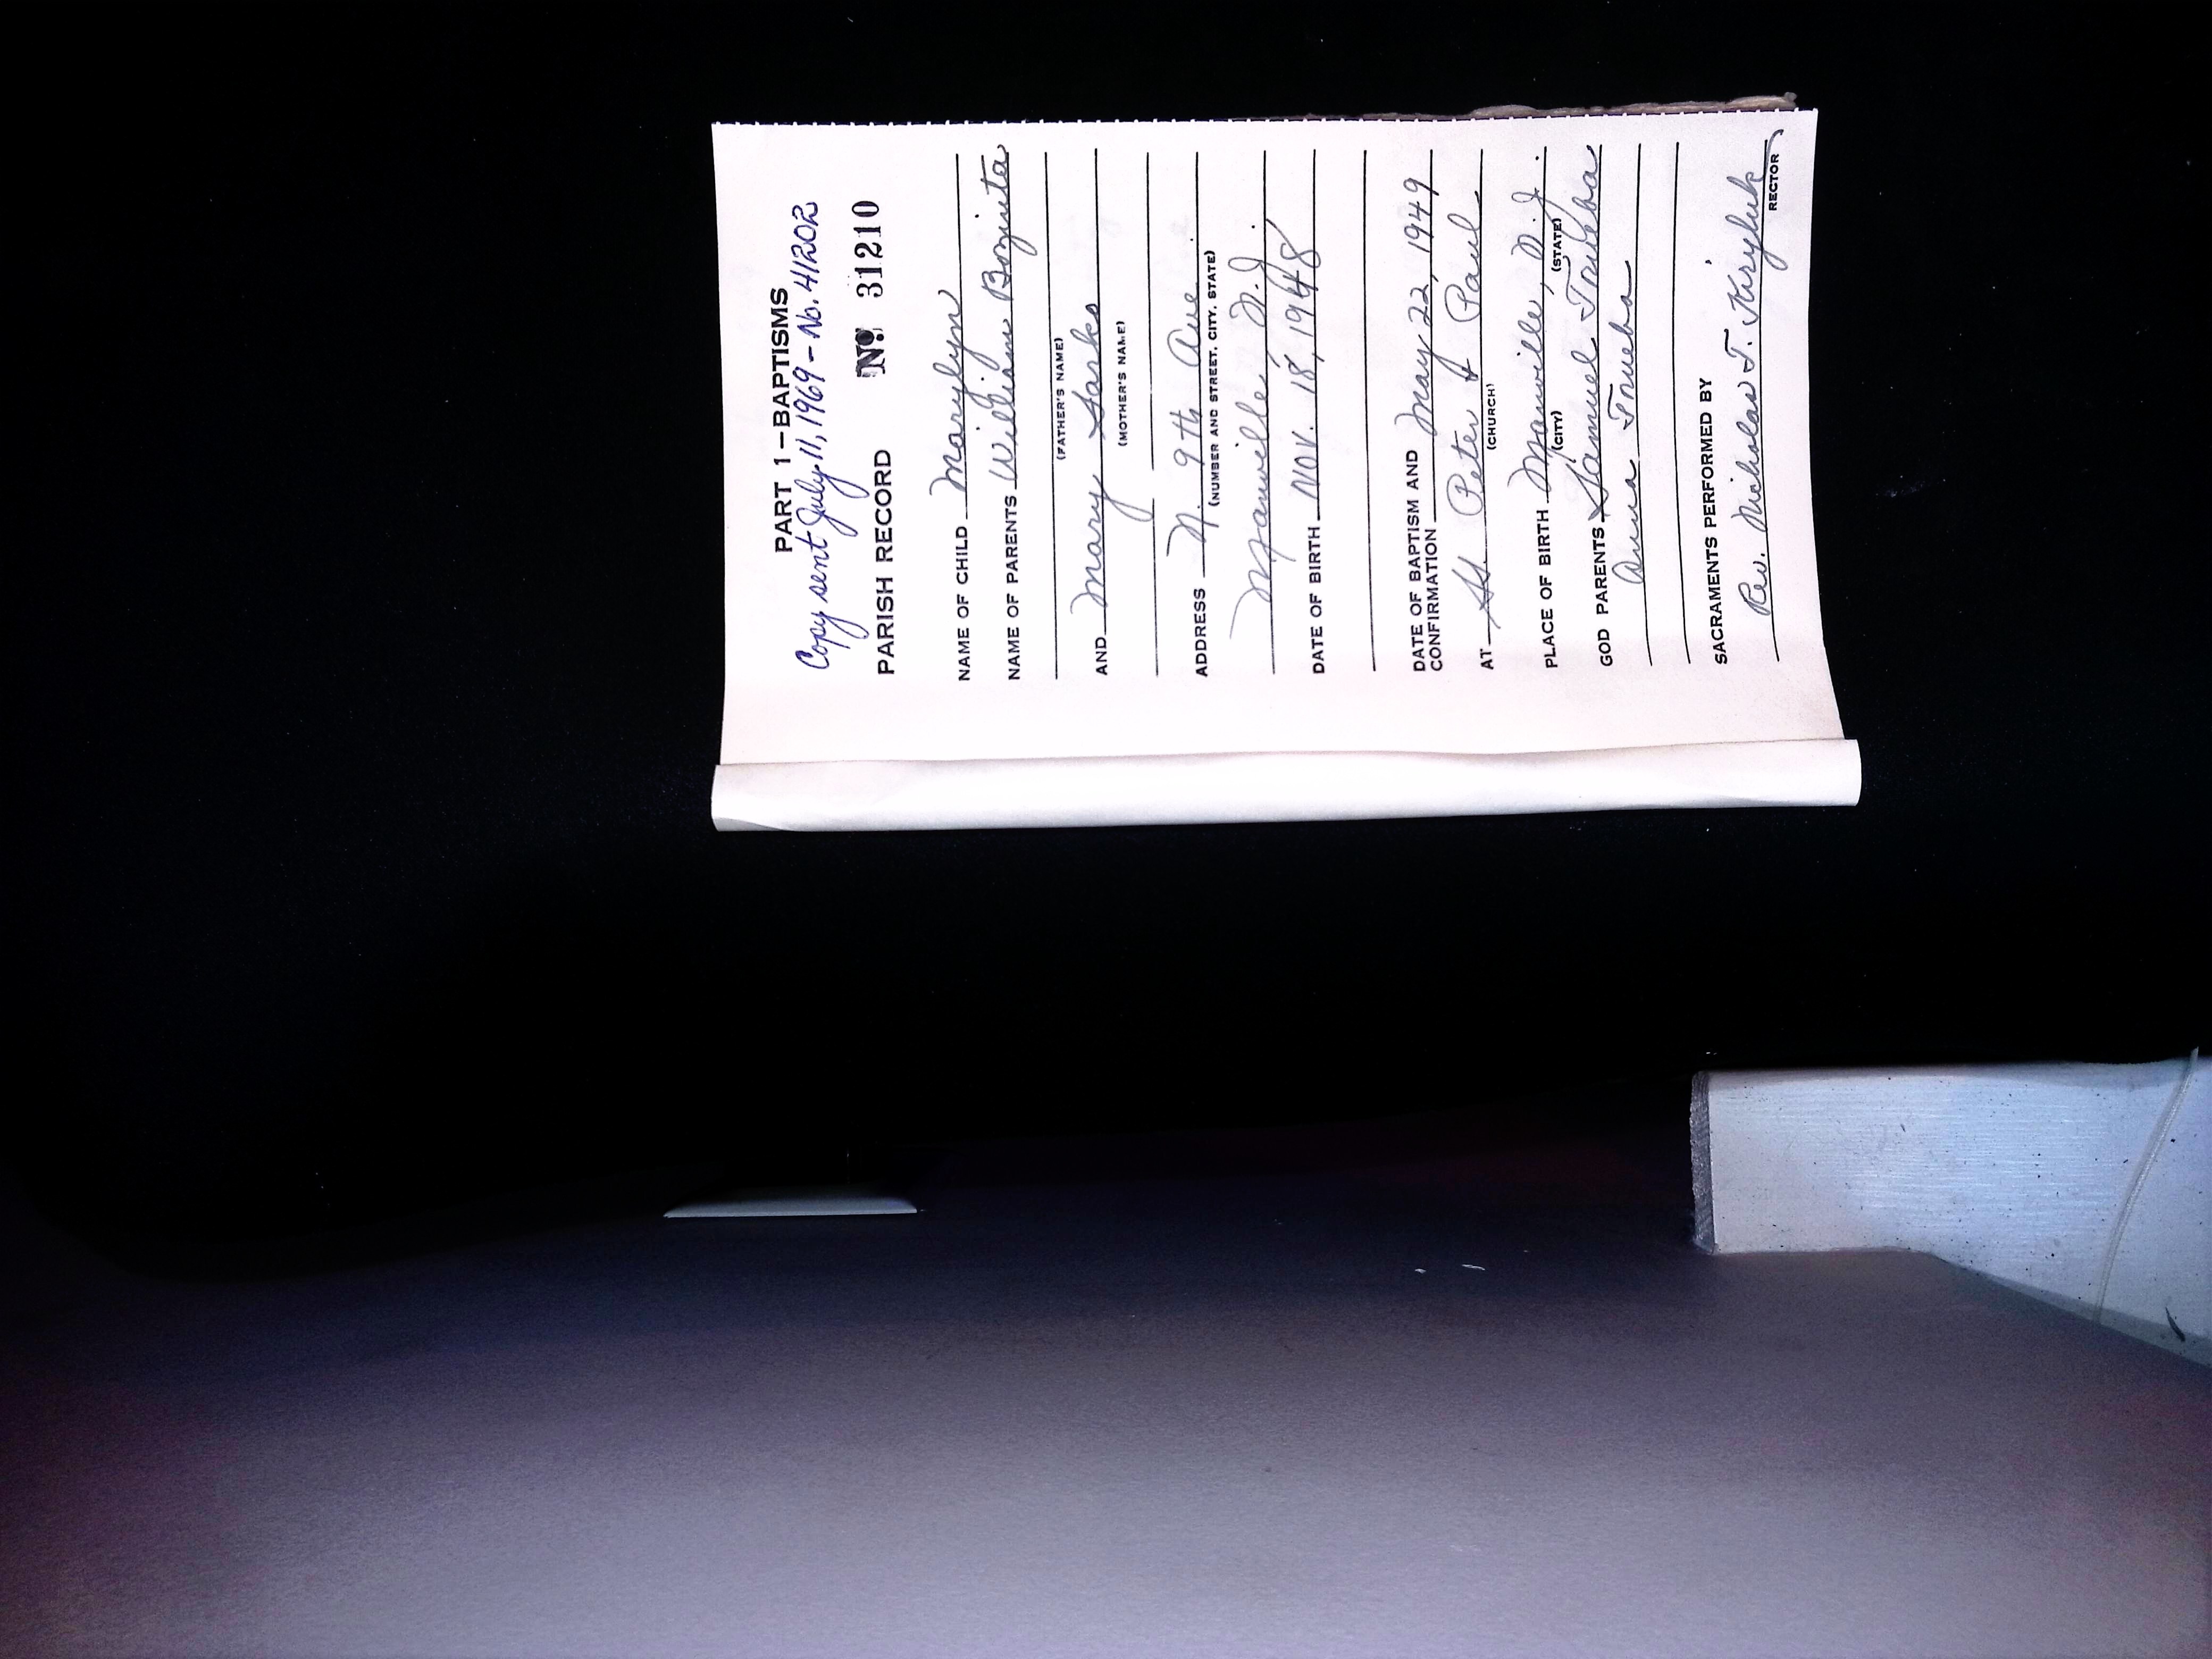 PART 1—BAPTISMS
Copy sent July 11, 1969 - No. 41202
PARISH RECORD No 31210
NAME OF CHILD Marylyn
NAME OF PARENTS William Bozinta
(FATHER'S NAME)
AND Mary Sarko
(MOTHER'S NAME)
ADDRESS N. 9th Ave
(NUMBER AND STREET, CITY, STATE)
Manville, N.J.
DATE OF BIRTH NOV. 18, 1948
DATE OF BAPTISM AND
CONFIRMATION May 22, 1949
AT SS. Peter & Paul
(CHURCH)
PLACE OF BIRTH Manville, N.J.
(CITY) (STATE)
GOD PARENTS Samuel Trueba
Anna Trueba
SACRAMENTS PERFORMED BY
Rev. Nicholas T. Kiryluk
RECTOR